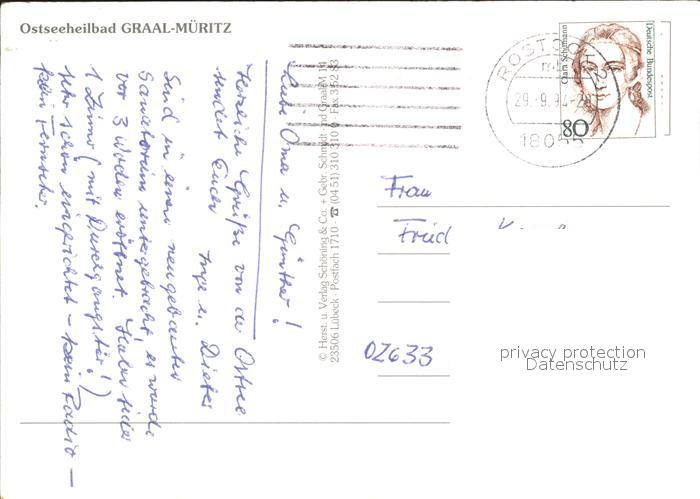 Ostseeheilbad GRAAL-MÜRITZ
Liebe Oma u. Günther!
Herzliche Grüße von der Ostsee
sendet Euch Inge u. Dieter
Sind in einem neugebauten
Sanatorium untergebracht, es wurde
vor 3 Wochen eröffnet. Haben jeder
1 Zimmer (mit Durchgangstür!)
sehr schön eingerichtet – kein Radio –
kein Fernseher.
© Herst. u. Verlag Schöning & Co. + Gebr. Schmidt und GraalM 14
23506 Lübeck · Postfach 1710 ☎ (04 51) 310 310 Fax 3 52 83
ROSTOCK
29.-9.94-20
180
Clara Schumann
Deutsche Bundespost
80
Frau
Fried
02633
privacy protection
Datenschutz